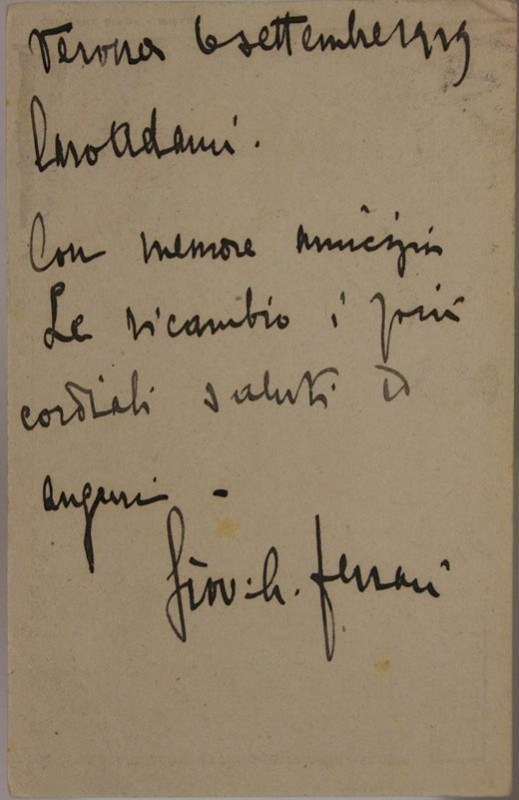 Verona 6 settembre 1919
Caro Adami.
Con memore amicizia
Le ricambio i più
cordiali saluti ed
auguri -
Ferrari